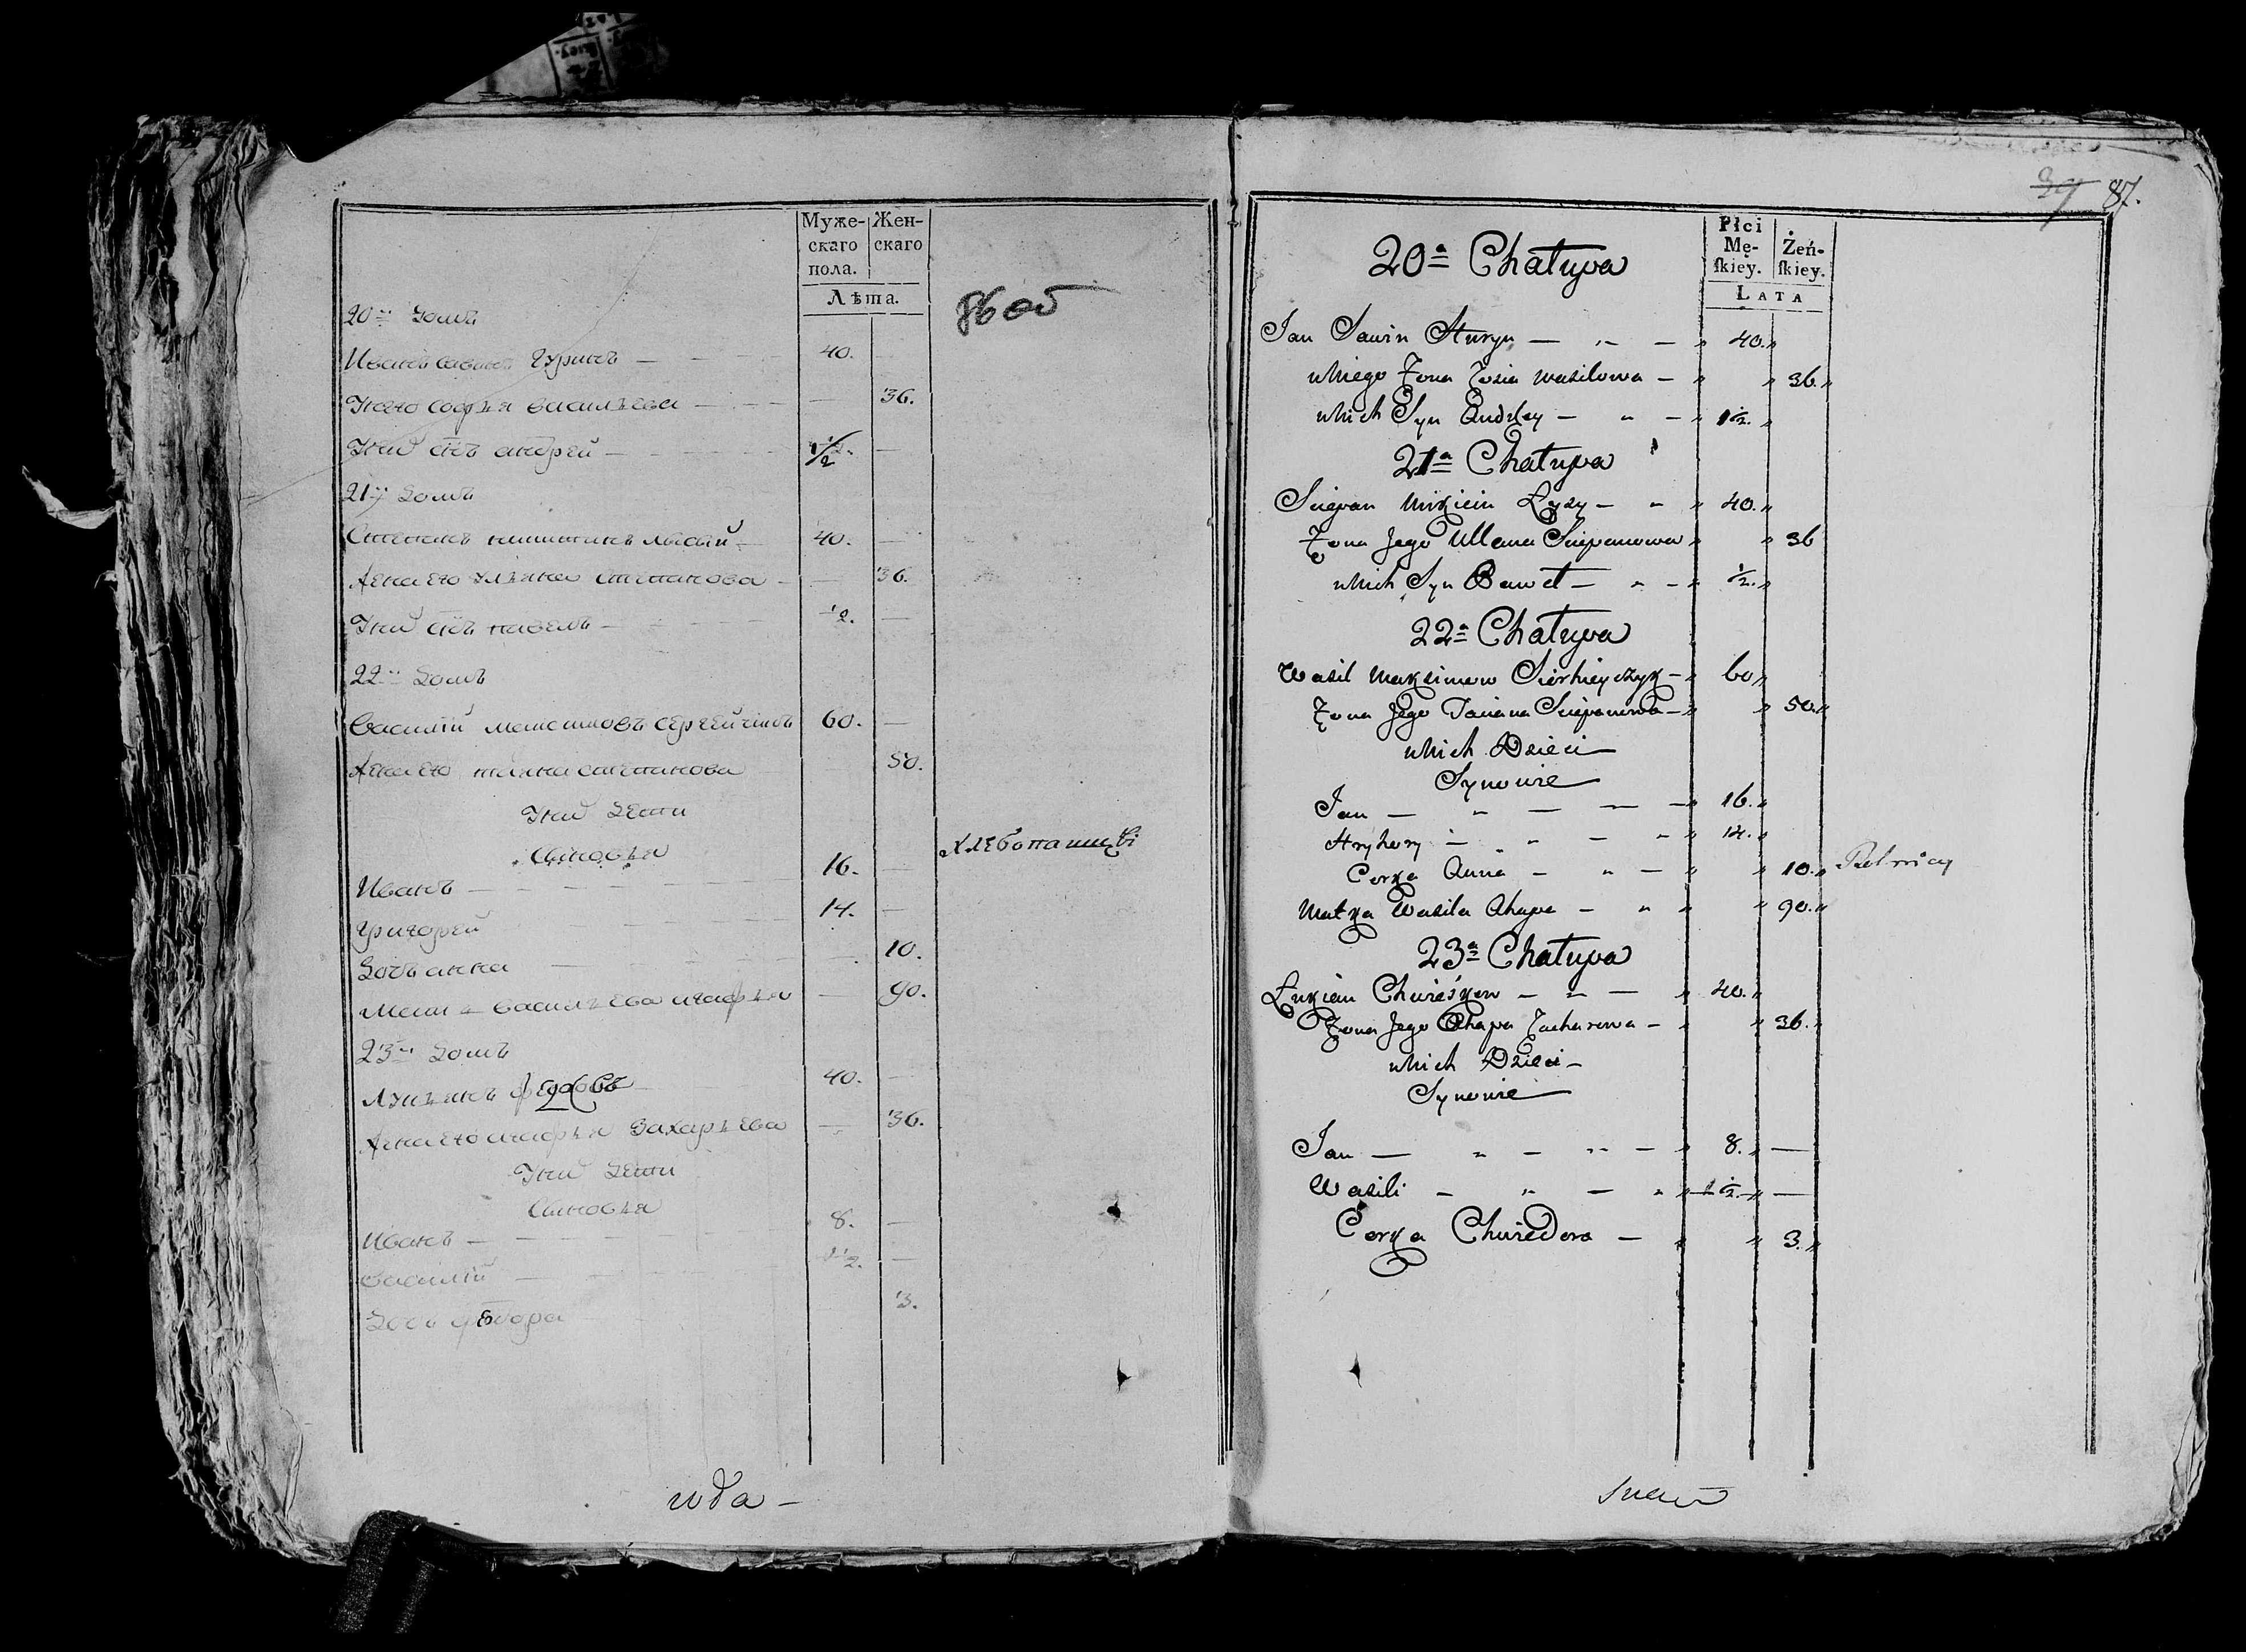 Муже-
скаго
пола.
Жен-
скаго
Лѣта.
86 об
20й Домъ
Иванъ Савинъ Гуринъ — 40. —
У него Софья Васильева — — 36.
У них сн҃ъ андрей — 1/2 —
21й Домъ
Степанъ никитинъ лысый — 40. —
Жена его Ульяна Степанова — — 36.
У них сн҃ъ павелъ — 1/2. —
22й Домъ
Василий Максимовъ Сергейчикъ 60. —
Жена его татяна степанова 50.
У них Дети
Сыновья
хлебопашцы
Иванъ — 16. —
Григорей 14. —
Дочь анна — — 10.
Мать Васильева агафья — 90.
23й Домъ
Лукьянъ федосовъ 40. —
Жена его агафья Захарьева — 36.
У них Дети
Сыновья
Иванъ — 8. —
Василий — 1 1/2. —
Дочь федора 3.
юда —
39 87.
Płci
Mę-
ſkiey.
Żeń-
ſkiey.
LATA
20a Chałupa
Jan Sawin Huryn — 40.
u Niego Żona Zosia wasilowa — 36.
u Nich Syn Andrzey — 1 1/2.
21a Chałupa
Sciepan Mikicin Łysy — 40.
Żona Jego Ullana Sciepanowa 36
u Nich Syn Paweł — 1/2.
22a Chałupa
Wasil Maksimow Sierhieyczyk — 60
Żona Jego Taciana Sciepanowa — 50.
u Nich Dzieci
Synowie
Jan — 16.
Hryhory — 14.
Corka Anna — 10. Rolnicy
Matka Wasila Ahapa — 90.
23a Chałupa
Łukian Chwieśkow — 40.
Żona Jego Ahapa Zacharowa — 36.
u Nich Dzieci —
Synowie
Jan — 8. —
Wasili — 1 1/2. —
Corka Chwiedora — 3.